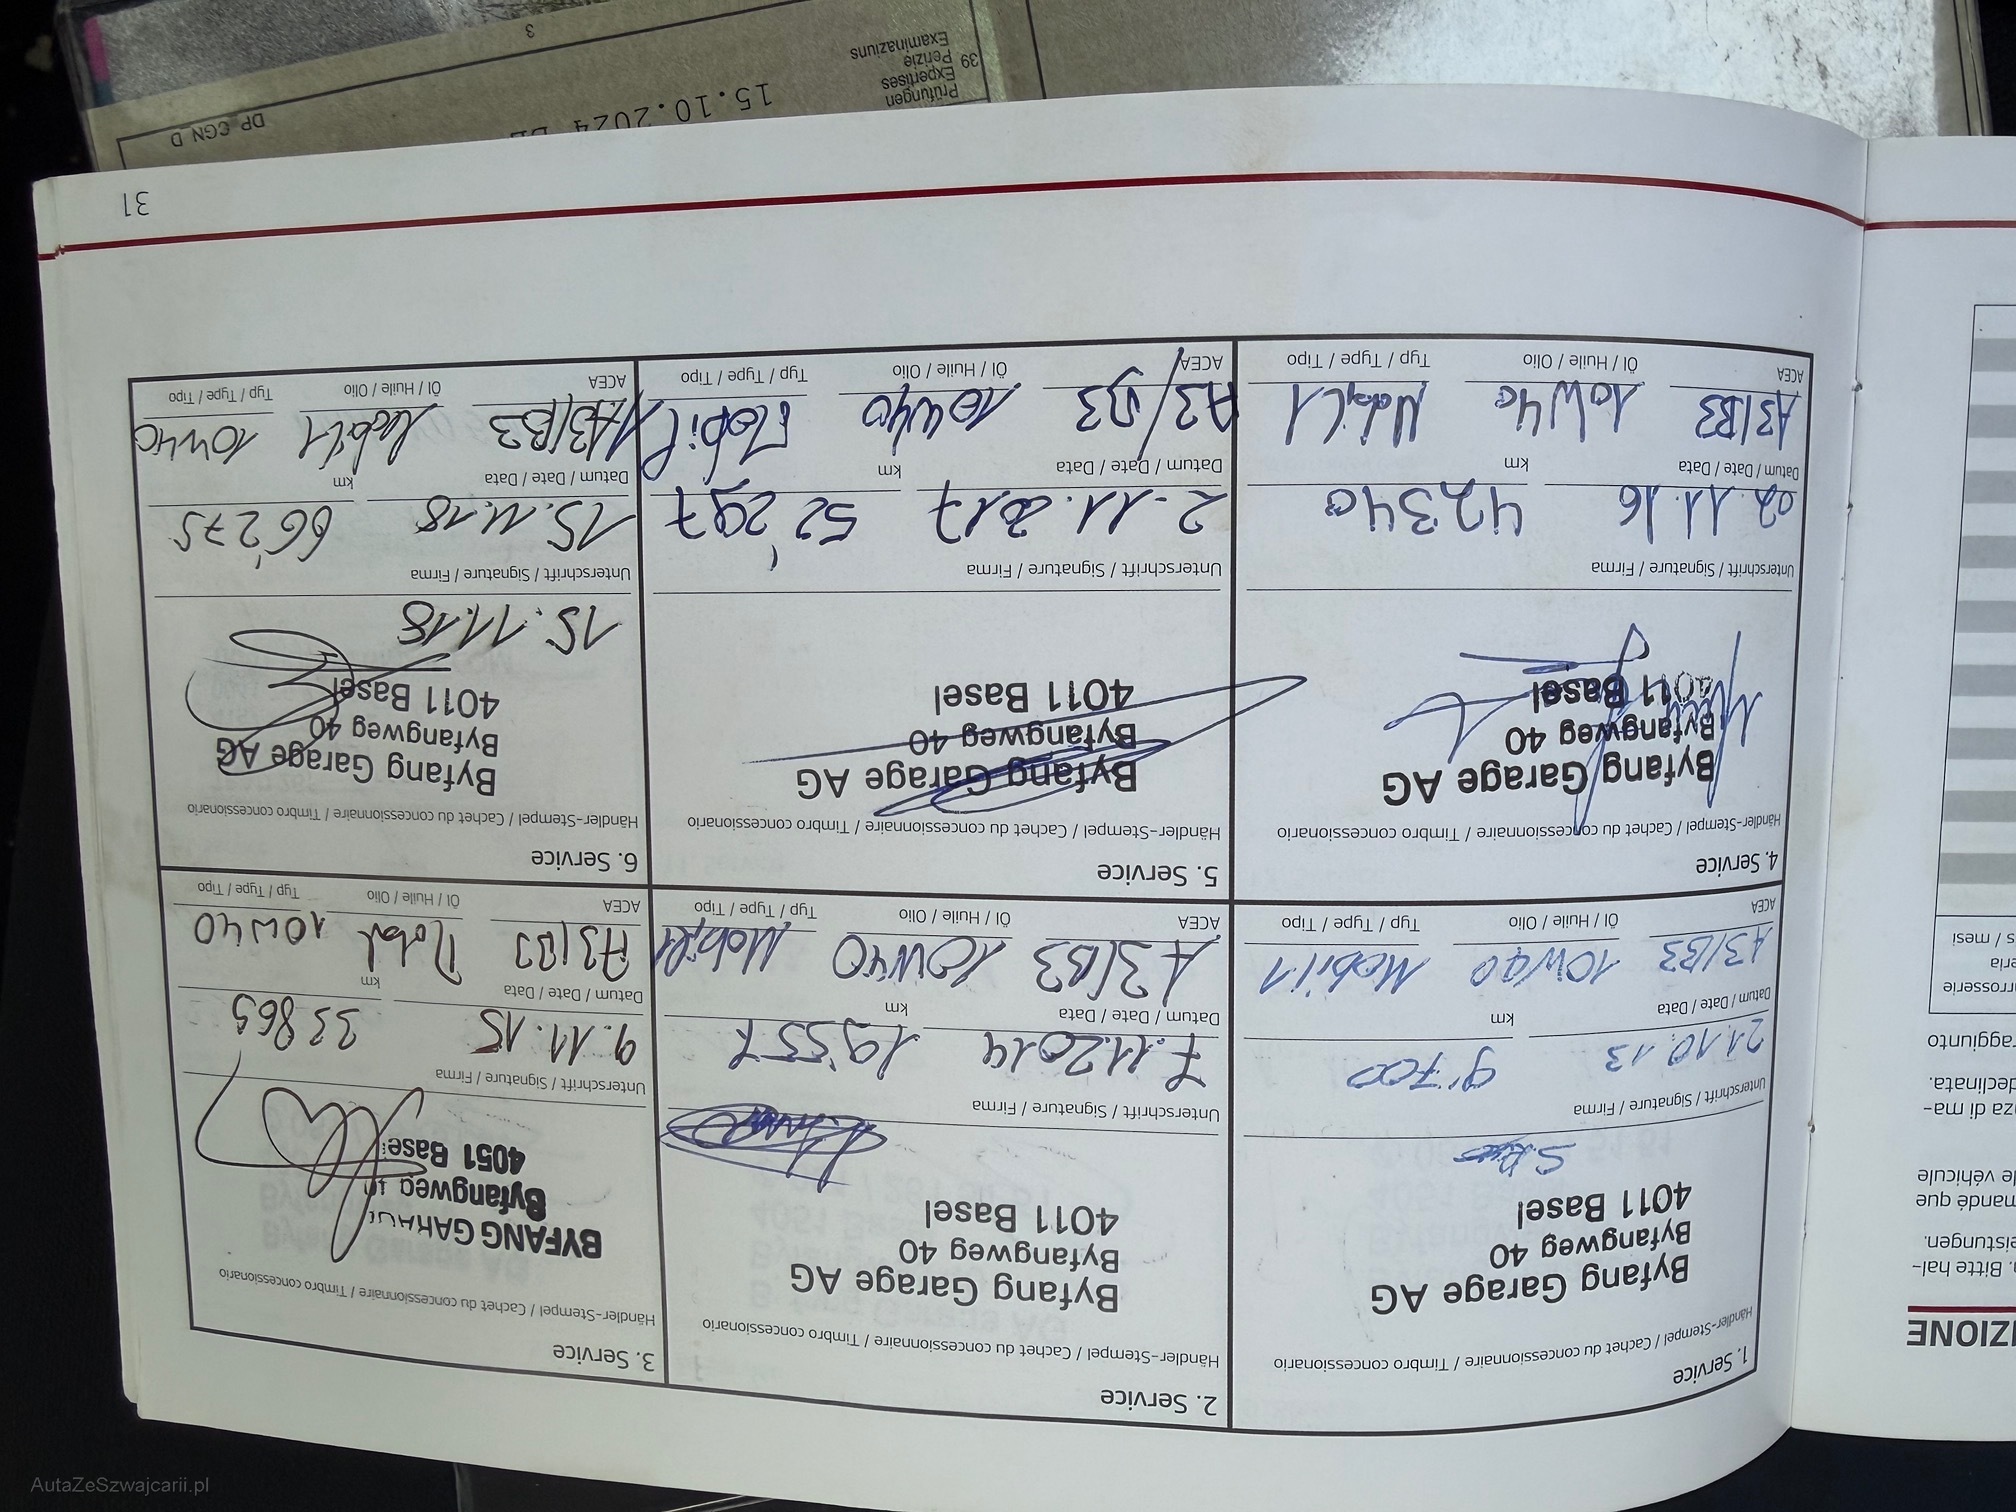 3
39
Prüfungen
Expertises
Perizie
Examinaziuns
15.10.2024
DP CGN D
1. Service
Händler-Stempel / Cachet du concessionnaire / Timbro concessionario
Byfang Garage AG
Byfangweg 40
4011 Basel
Unterschrift / Signature / Firma
21.10.13 9'700
Datum / Date / Data km
A3/B3 10W40 Mobil 1
ACEA Öl / Huile / Olio Typ / Type / Tipo
2. Service
Händler-Stempel / Cachet du concessionnaire / Timbro concessionario
Byfang Garage AG
Byfangweg 40
4011 Basel
Unterschrift / Signature / Firma
7.11.2014
Datum / Date / Data km
A3/B3 10W40 Mobil 1
ACEA Öl / Huile / Olio Typ / Type / Tipo
3. Service
Händler-Stempel / Cachet du concessionnaire / Timbro concessionario
BYFANG GARAGE
Byfangweg
4051 Basel
Unterschrift / Signature / Firma
9.11.15 33865
Datum / Date / Data km
A3/B3 10W40
ACEA Öl / Huile / Olio Typ / Type / Tipo
4. Service
Händler-Stempel / Cachet du concessionnaire / Timbro concessionario
Byfang Garage AG
Byfangweg 40
4011 Basel
Unterschrift / Signature / Firma
02.11.16 42340
Datum / Date / Data km
A3/B3 10W40 Mobil 1
ACEA Öl / Huile / Olio Typ / Type / Tipo
5. Service
Händler-Stempel / Cachet du concessionnaire / Timbro concessionario
Byfang Garage AG
Byfangweg 40
4011 Basel
Unterschrift / Signature / Firma
2.11.2017 52'297
Datum / Date / Data km
A3/B3 10W40 Mobil 1
ACEA Öl / Huile / Olio Typ / Type / Tipo
6. Service
Händler-Stempel / Cachet du concessionnaire / Timbro concessionario
Byfang Garage AG
Byfangweg 40
4011 Basel
15.11.18
Unterschrift / Signature / Firma
15.11.18 66'275
Datum / Date / Data km
A3/B3 Mobil 1 10W40
ACEA Öl / Huile / Olio Typ / Type / Tipo
31
IZIONE
Bitte hal-
eistungen.
mandé que
le véhicule
za di ma-
declinata.
raggiunto
arrosserie
eria
s / mesi
AutaZeSzwajcarii.pl